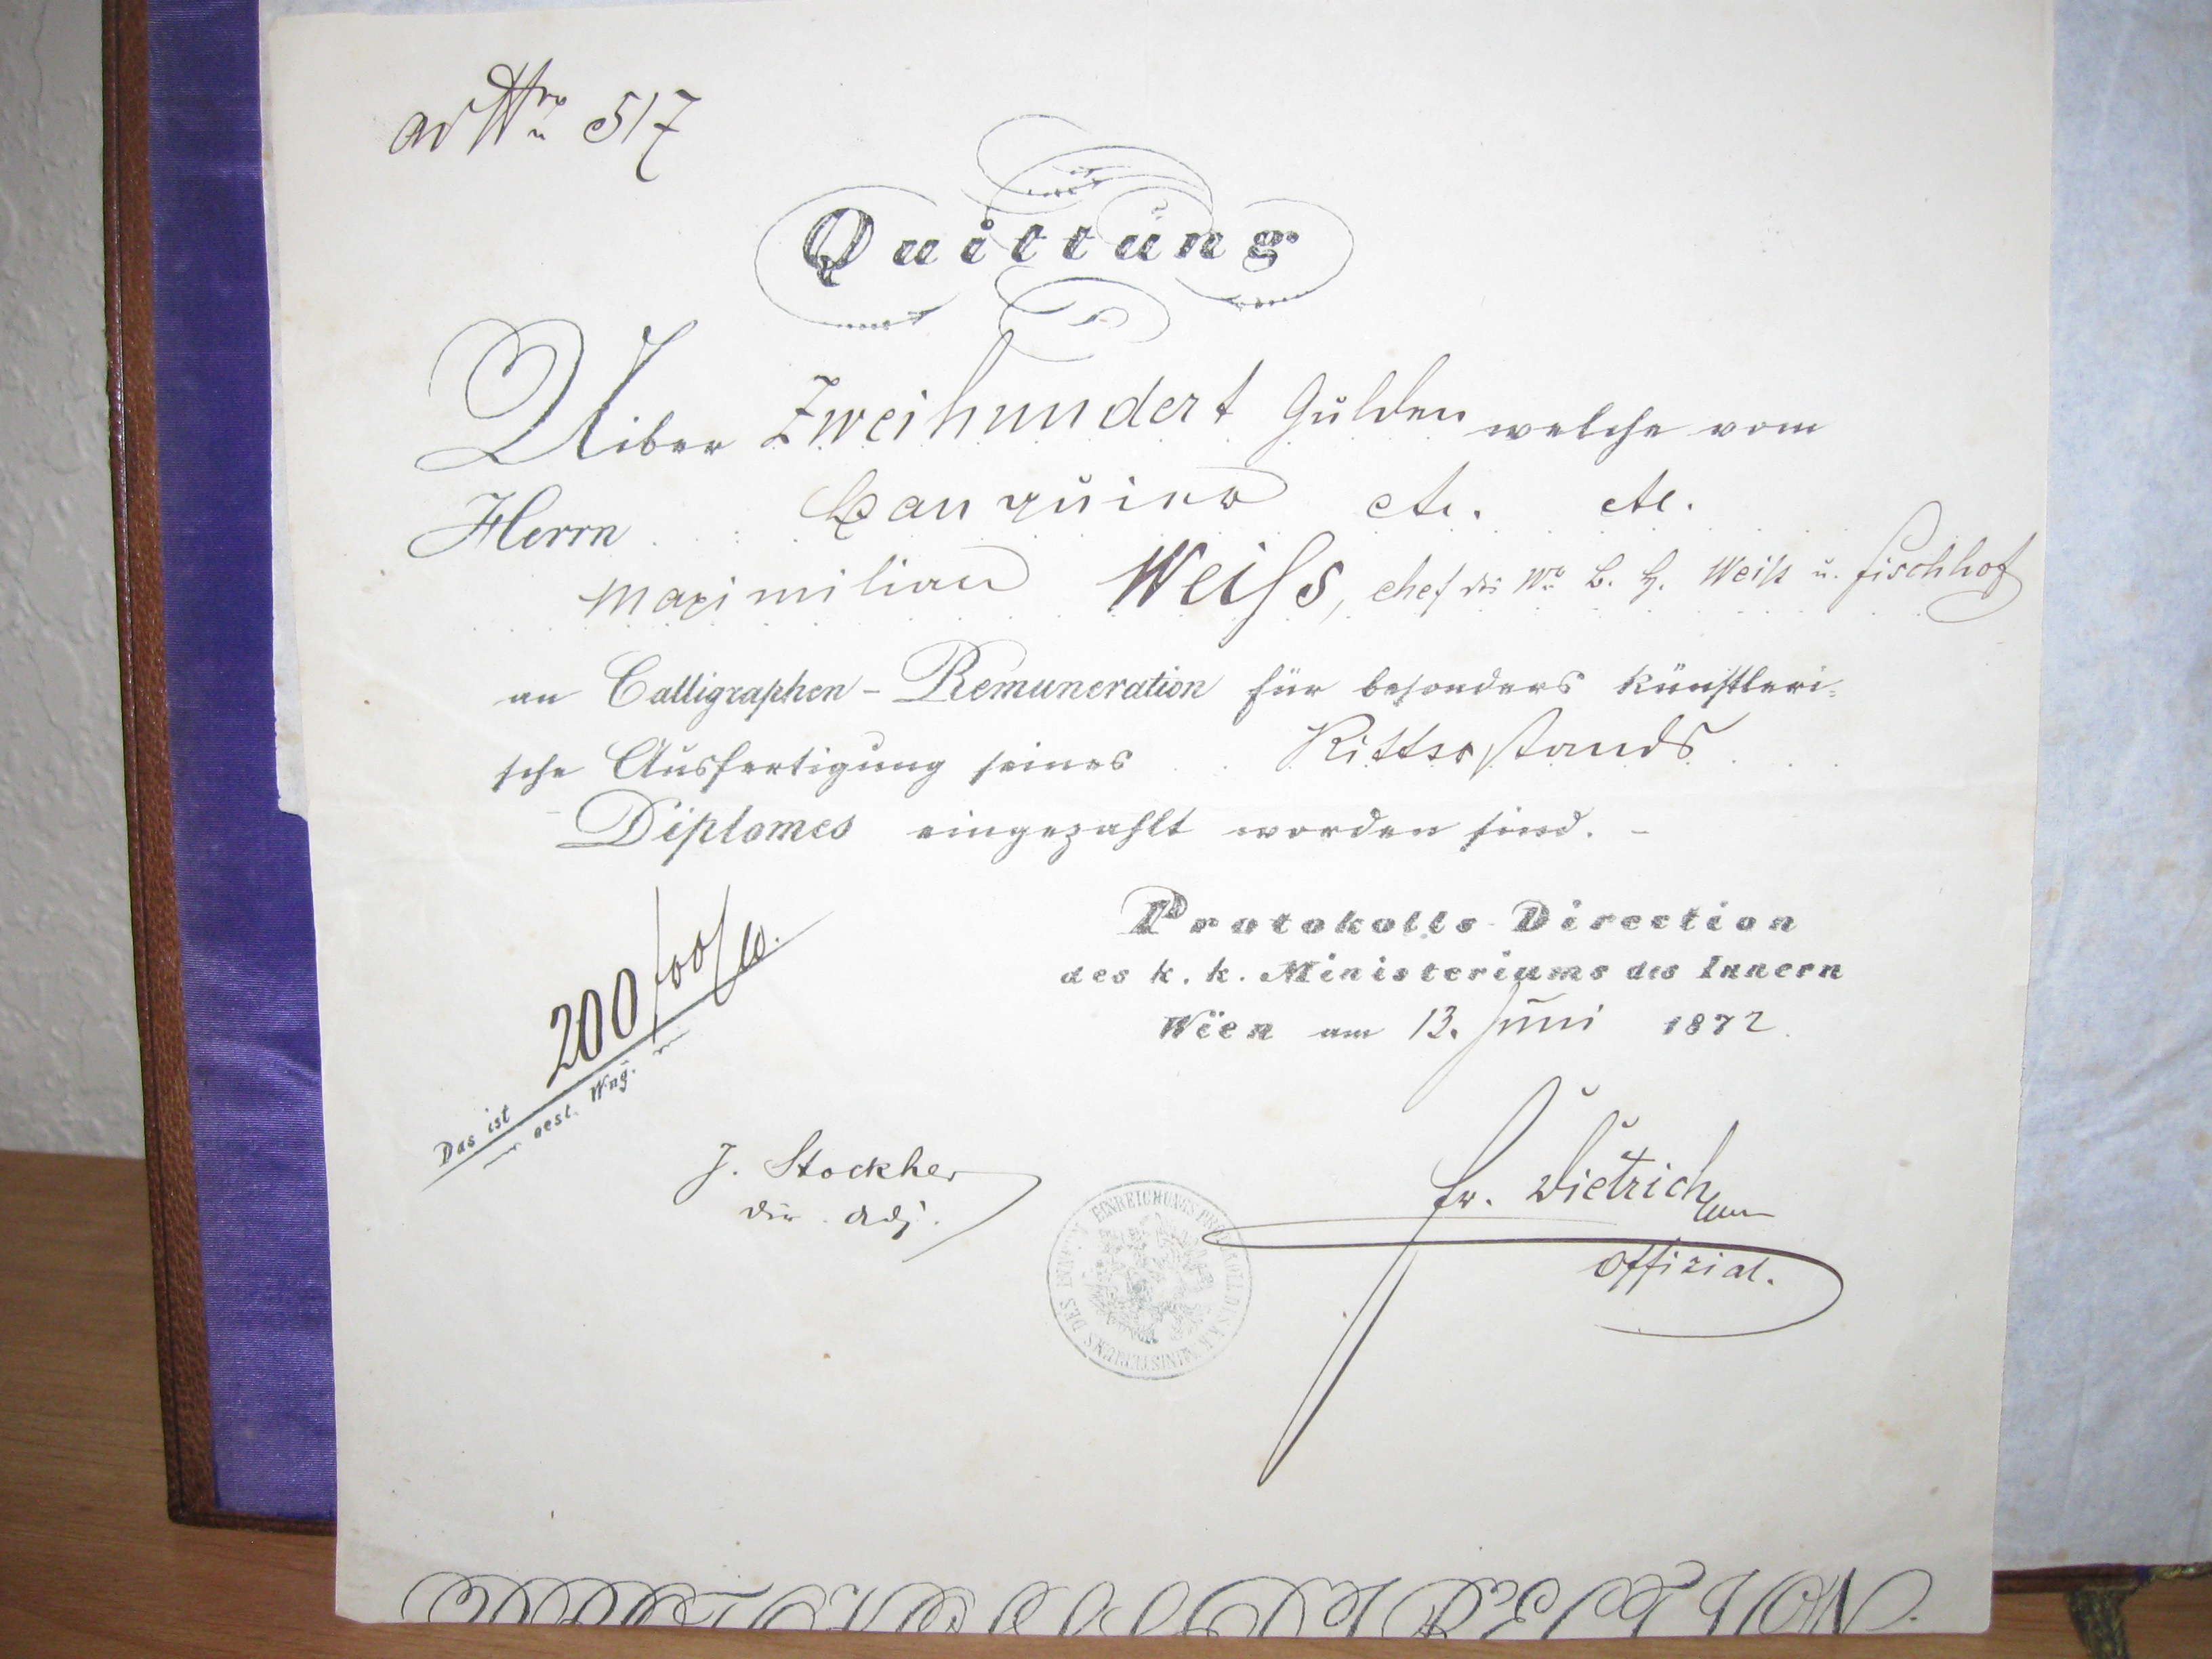 ad Nro 517
Quittung
Uiber Zweihundert Gulden welche vom
Herrn Banquier etc. etc.
Maximilian Weiss, Chef des B. H. Weiss u. Fischhof
an Calligraphen-Remuneration für besonders künstleri-
sche Ausfertigung seines Ritterstands
Diplomes eingezahlt worden sind. –
Protokolls-Direction
des k. k. Ministeriums des Innern
Wien am 13. Juni 1872.
Das ist 200
oest. Wng.
J. Stockher
Dir. Adj.
Fr. Dietrich
Offizial.
EINREICHUNGS PROTOKOLL DES K. K. MINISTERIUMS DES INNERN